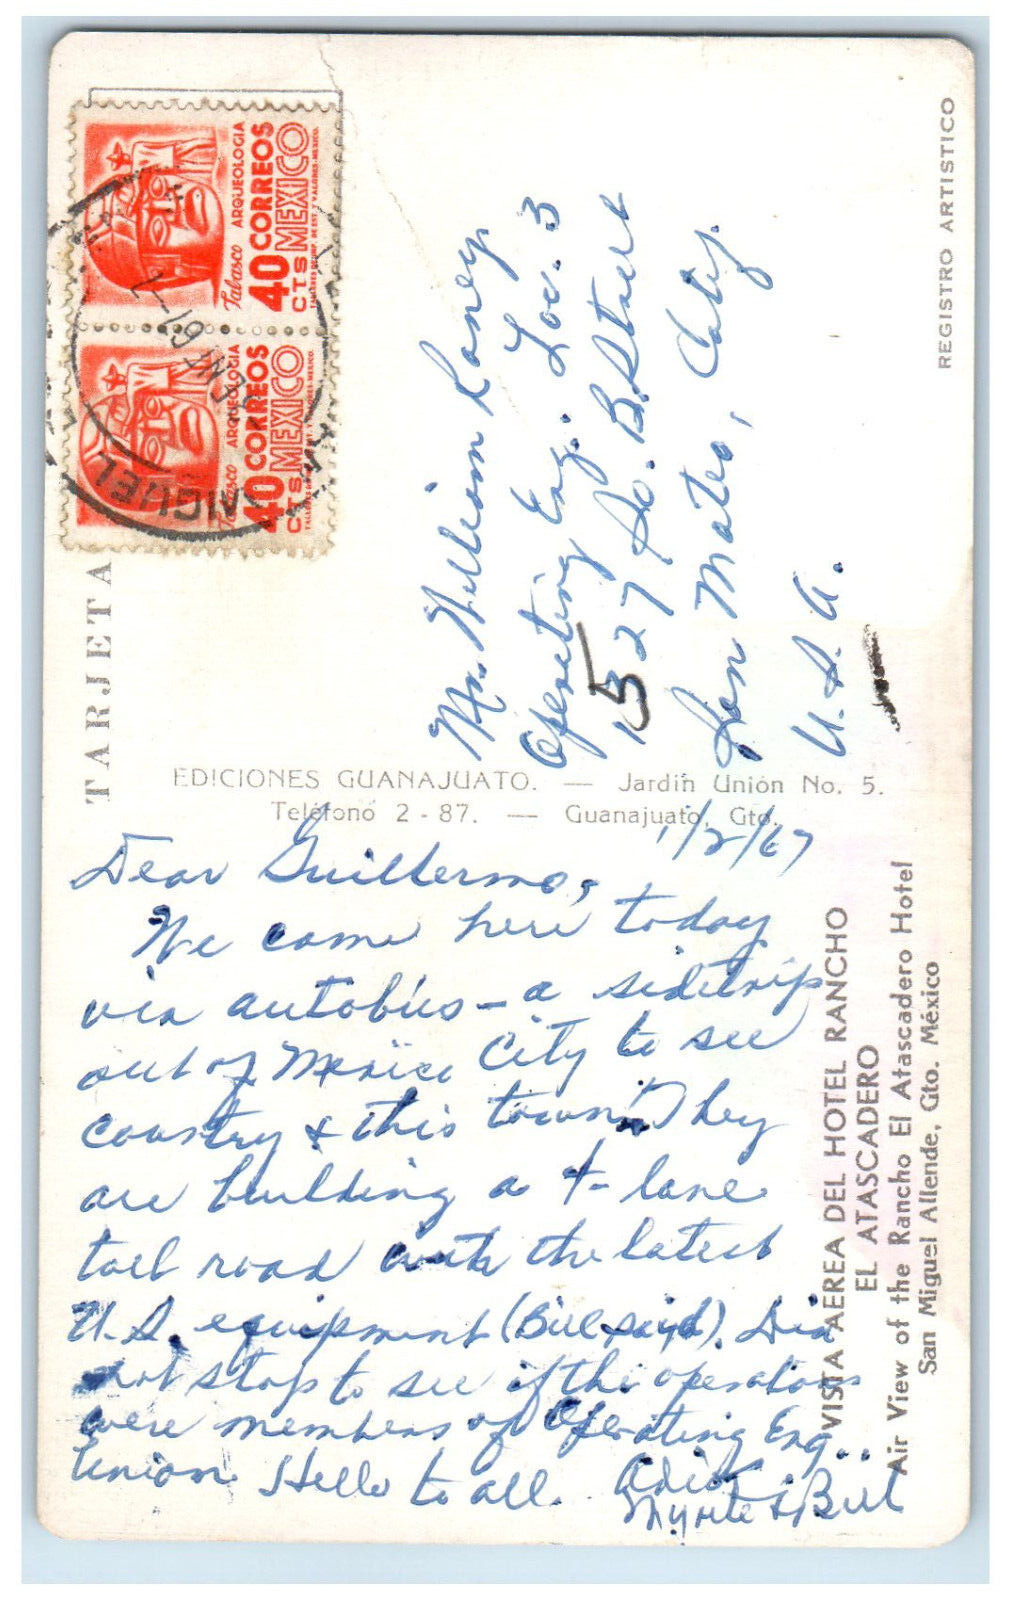 TARJETA
Tabasco ARQUEOLOGIA
40 CORREOS
CTS MEXICO
Tabasco ARQUEOLOGIA
40 CORREOS
CTS MEXICO
MIGUEL
REGISTRO ARTISTICO
Mr. William Laney
Operating Eng. Loc. 3
5
327 So. B. Street
San Mateo, Calif.
U.S.A.
EDICIONES GUANAJUATO. — Jardín Unión No. 5.
Teléfono 2 - 87. — Guanajuato, Gto.
1/2/67
Dear Guillermo,
We came here today
via autobús - a sidetrip
out of Mexico City to see
country & this town. They
are building a 4-lane
toll road with the latest
U.S. equipment (Bill said). Did
not stop to see if the operators
were members of Operating Eng.
Union. Hello to all. Adios
Myrtle & Bill
VISTA AEREA DEL HOTEL RANCHO
EL ATASCADERO
Air View of the Rancho El Atascadero Hotel
San Miguel Allende, Gto. México